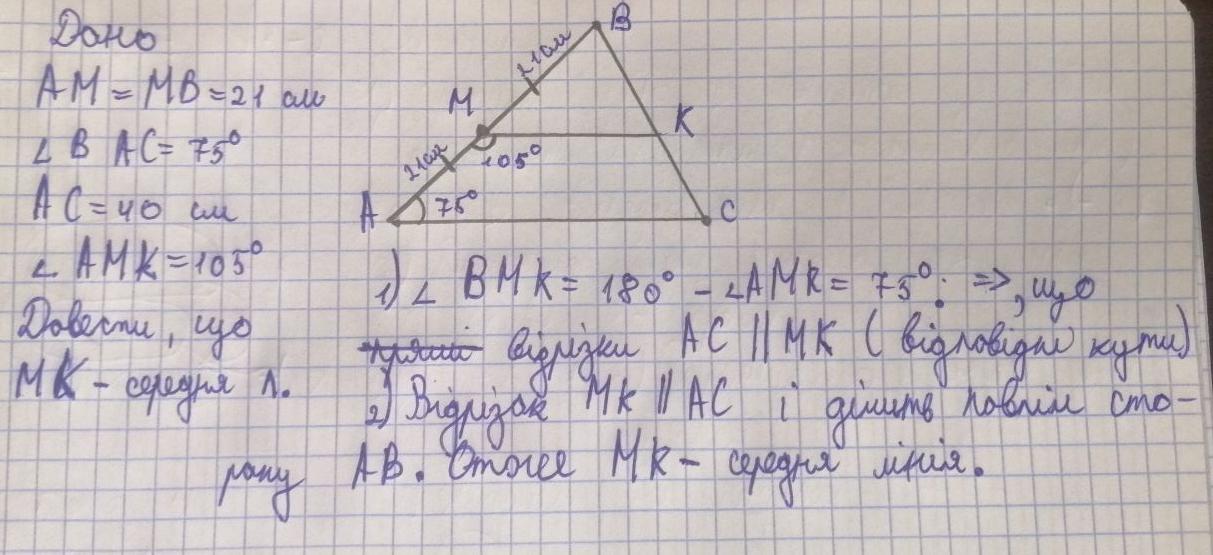 Дано
AM = MB = 21 см
∠BAC = 75°
AC = 40 см
∠AMK = 105°
Довести, що
MK - середня л.
B
21см
M
K
21см
105°
A
75°
C
1) ∠BMK = 180° - ∠AMK = 75°; =>, що
прямі відрізки AC || MK (відповідні кути)
2) Відрізок MK || AC і ділить навпіл сто-
рону AB. Отже MK - середня лінія.